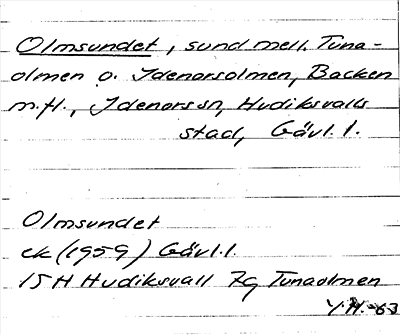 Olmsundet, sund mell. Tuna-
olmen o. Idenorsolmen, Backen
m.fl., Idenors sn, Hudiksvalls
stad, Gävl. l.
Olmsundet
ek (1959) Gävl. l.
15H Hudiksvall 7g Tunaolmen
Y.H.-63